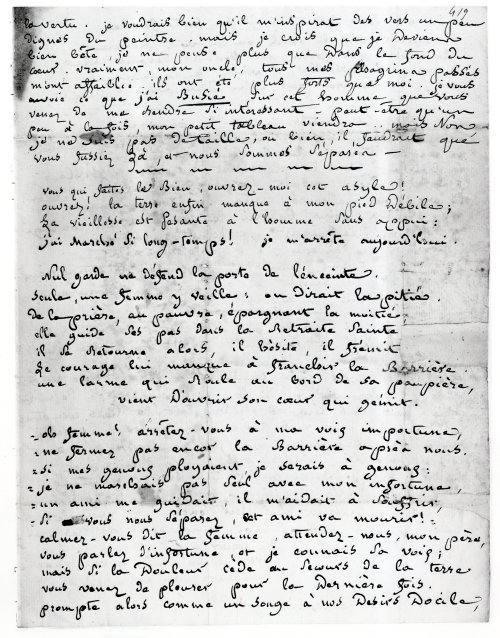 419
la vertu. je voudrais bien qu'il m'inspirat des vers un peu
dignes du peintre, mais je crois que je Deviens
bien bête, je ne pense plus que Dans le fond du
cœur vraiment, mon oncle, tous mes passés
m'ont affaiblie. ils ont été plus forts que moi. je vous
envoie ce que j'ai sur cet homme que vous
venez de me rendre si intéressant - peut-être qu'un
peu à la fois, mon petit tableau viendra mais Non
je ne suis pas detaillée, ou bien, il faudrait que
vous fussiez là, et nous sommes séparés -
vous qui faites le Bien, ouvrez-moi cet asyle!
ouvrez! la terre enfin manque à mon pied Débile;
La vieillesse est pesante à l'homme sans appui:
j'ai marché si long-temps! je m'arrête aujourd'hui.
Nul garde ne défend la porte de l'enceinte.
seule, une femme y veille: on dirait la pitié.
De la prière, au pauvre, épargnant la moitié,
elle guide ses pas dans la Retraite Sainte
il se Retourne alors, il hésite, il frémit
Le courage lui manque à franchir la Barrière.
une larme qui Roule au bord de sa paupière,
vient D'ouvrir son cœur qui gémit.
- oh femme! arrêtez-vous à ma voix importune,
- ne fermez pas encor la Barrière après nous.
- si mes genoux ployaient, je serais à genoux:
- je ne marchais pas seul avec mon infortune,
- un ami me guidait, il m'aidait à souffrir,
- si vous nous séparez, cet ami va mourir! -
calmez-vous dit la femme, attendez-nous, mon père,
vous parlez d'infortune, et je connais sa voix;
mais si la Douleur cède au secours de la terre
vous venez de pleurer pour la Dernière fois.
prompte alors comme un songe à nos Desirs Docile,